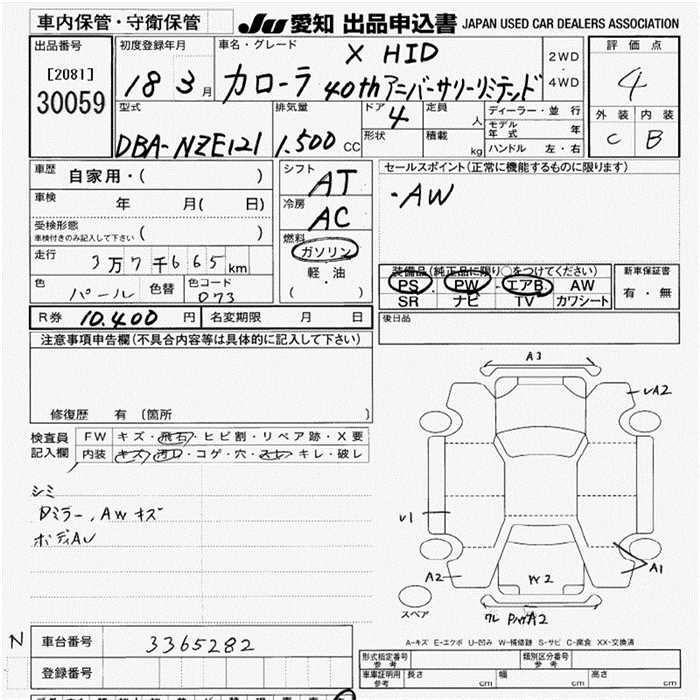 車内保管・守衛保管
JU 愛知 出品申込書 JAPAN USED CAR DEALERS ASSOCIATION
出品番号
[2081]
30059
初度登録年月
18 3月
車名・グレード
X HID
カローラ 40thアニバーサリーリミテッド
2WD
・
4WD
評価点
4
外装 内装
C B
型式
DBA-NZE121
排気量
1.500 CC
ドア
4
定員
人
形状
積載
kg
ディーラー・並行
モデル年式 年
ハンドル 左・右
車歴
自家用・( )
車検
年 月( 日)
受検形態
車検付きのみ記入して下さい ( )
走行
3万7千665km
色
パール
色替
色コード
073
シフト
AT
冷房
AC
燃料
ガソリン
軽・油
( )
セールスポイント(正常に機能するものに限ります)
・AW
装備品(純正品に限り○をつけてください)
PS・PW・エアB AW
SR ナビ TV カワシート
新車保証書
有・無
R券 10.400 円
名変期限 月 日
後日品
注意事項申告欄(不具合内容等は具体的に記入して下さい)
修復歴 有 (箇所 )
検査員
記入欄
FW キズ・飛石・ヒビ割・リペア跡・X要
内装 キズ・汚レ・コゲ・穴・スレ・キレ・破レ
シミ
Dミラー、AWキズ
ボディAU
A3
UA2
U1
A1
A2
W2
スペア
ワレ
A-キズ E-エクボ U-凹み W-補修跡 S-サビ C-腐食 XX-交換済
N
車台番号 3365282
登録番号
形式指定番号
参考
類別区分番号
参考
車庫証明用
参考
長さ cm
幅 cm
高さ cm